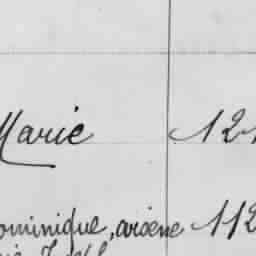 Marie 121
Dominique, arsène 112